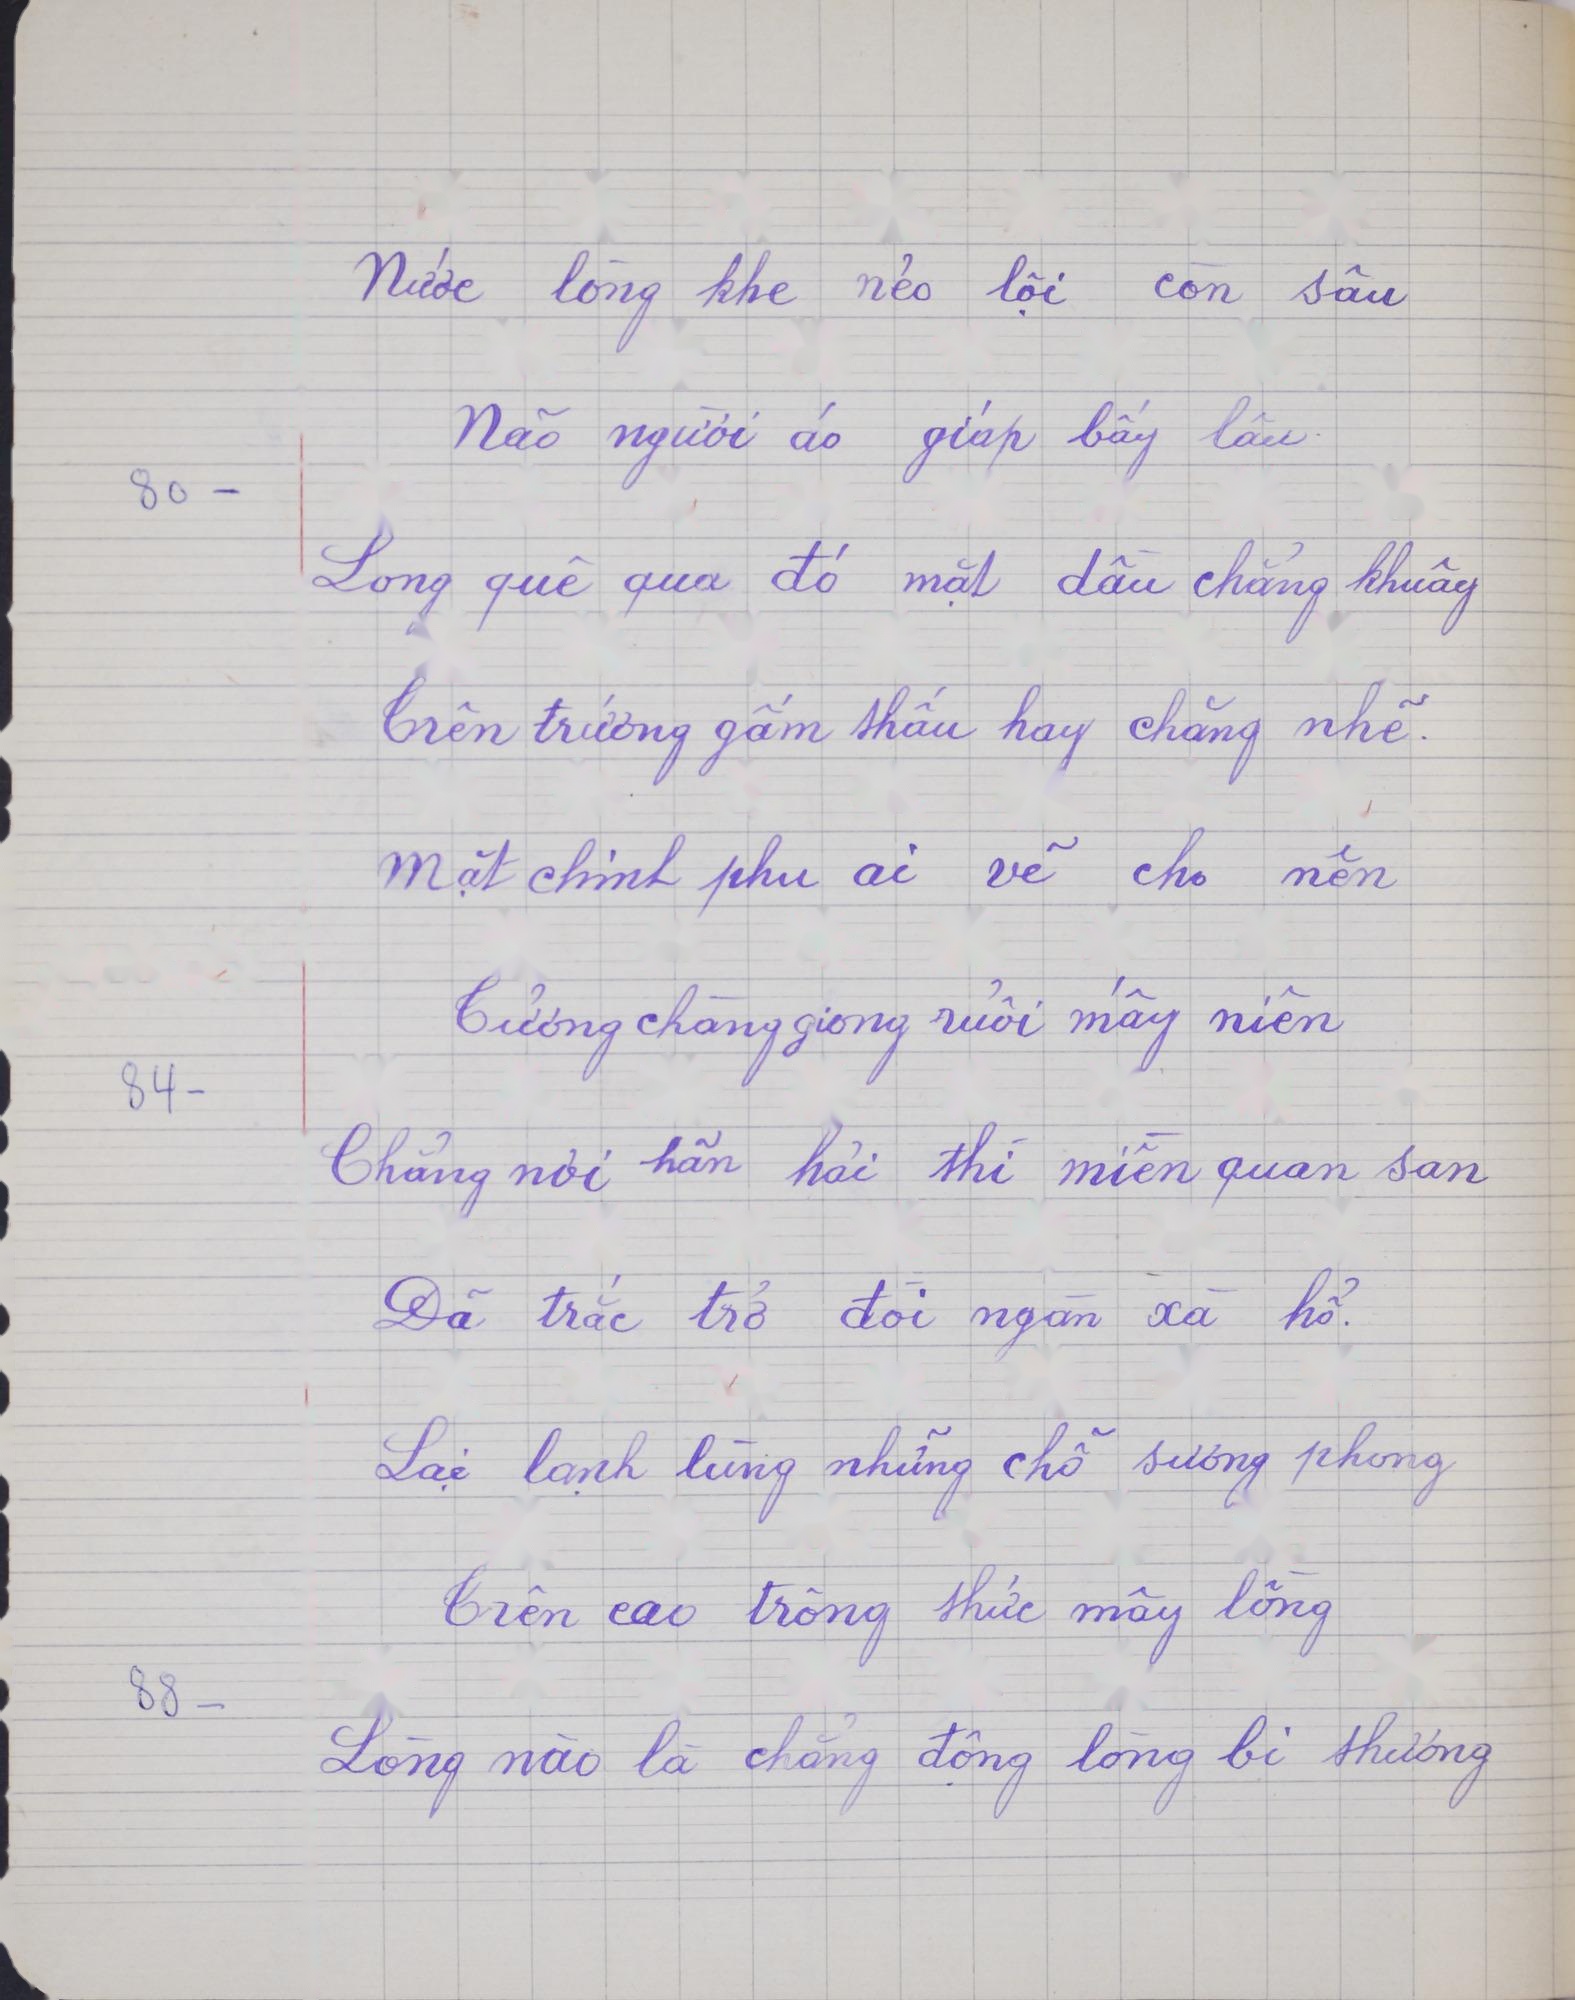 Nước lòng khe nẻo lội còn sâu
Não người áo giáp bấy lâu
80 -
Lòng quê qua đó mặt dàu chẳng khuây
Trên trướng gấm thấu hay chăng nhẽ.
Mặt chinh phu ai vẽ cho nên
Tưởng chàng giong ruổi mấy niên
84 -
Chẳng nơi hãn hải thì miền quan san
Đã trắc trở đòi ngàn xà hổ.
Lại lạnh lùng những chỗ sương phong
Trên cao trông thức mây lồng
88 -
Lòng nào là chẳng động lòng bi thương